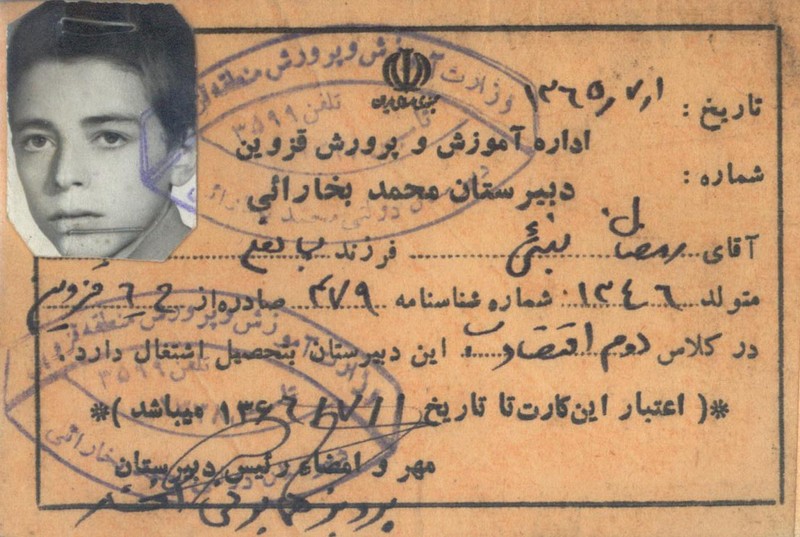 جمهوری اسلامی ایران
تاریخ: ۱۳۶۵/۷/۱
اداره آموزش و پرورش قزوین
شماره:
دبیرستان محمد بخارائی
آقای رمضان فرزند
متولد ۱۳۴۶ شماره شناسنامه ۴۷۹ صادره از ح ۶ قزوین
در کلاس دوم اقتصاد ب این دبیرستان بتحصیل اشتغال دارد.
*( اعتبار این کارت تا تاریخ ۱۳۶۶/۷/۱ میباشد )*
مهر و امضاء رئیس دبیرستان
وزارت آموزش و پرورش منطقه
تلفن ۳۵۹۹
وزارت آموزش و پرورش منطقه قزوین
تلفن ۳۵۹۹